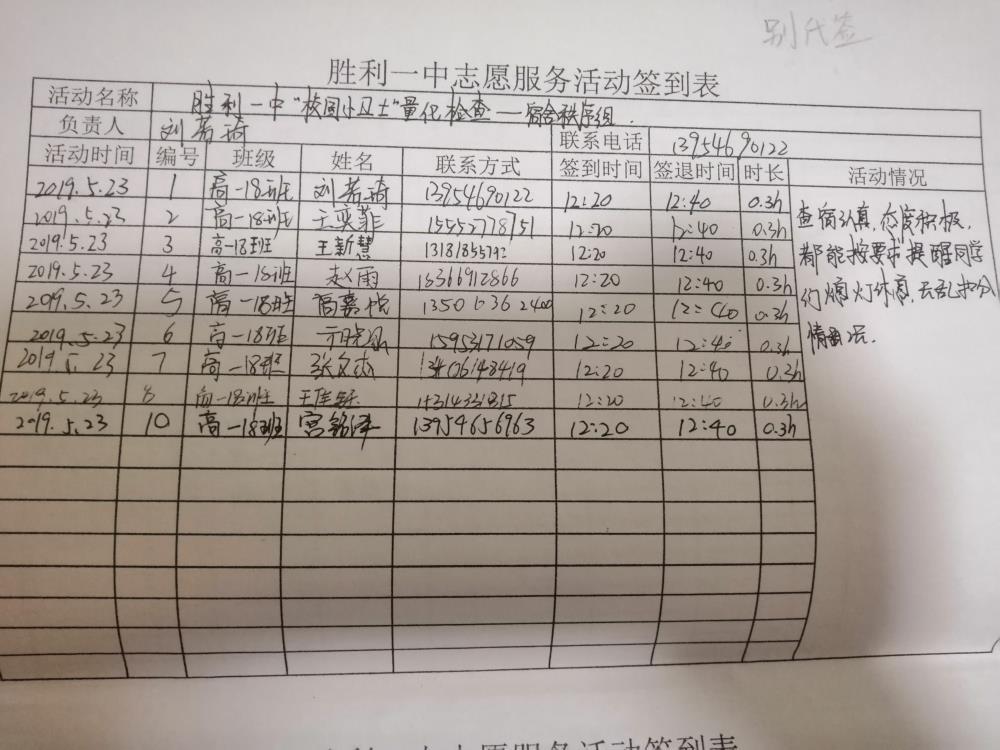 别代签
胜利一中志愿服务活动签到表
活动名称 胜利一中“校园小卫士”量化检查——宿舍秩序组.
负责人 刘若琦 联系电话 13954690122
活动时间 编号 班级 姓名 联系方式 签到时间 签退时间 时长 活动情况
2019.5.23 1 高一18班 刘若琦 13954690122 12:20 12:40 0.3h
2019.5.23 2 高一18班 王奕菲 15552778751 12:20 12:40 0.3h
2019.5.23 3 高一18班 王新慧 12:20 12:40 0.3h
2019.5.23 4 高一18班 赵雨 18366912866 12:20 12:40 0.3h
2019.5.23 5 高一18班 12:20 12:40 0.3h
2019.5.23 6 高一18班 15953171059 12:20 12:40 0.3h
2019.5.23 7 高一18班 张文杰 12:20 12:40 0.3h
2019.5.23 8 高一18班 12:20 12:40 0.3h
2019.5.23 10 高一18班 宫铭泽 13954656963 12:20 12:40 0.3h
查宿认真,态度积极,
都能按要求提醒同学
们熄灯休息,无乱扣分
情况.
志愿服务活动签到表